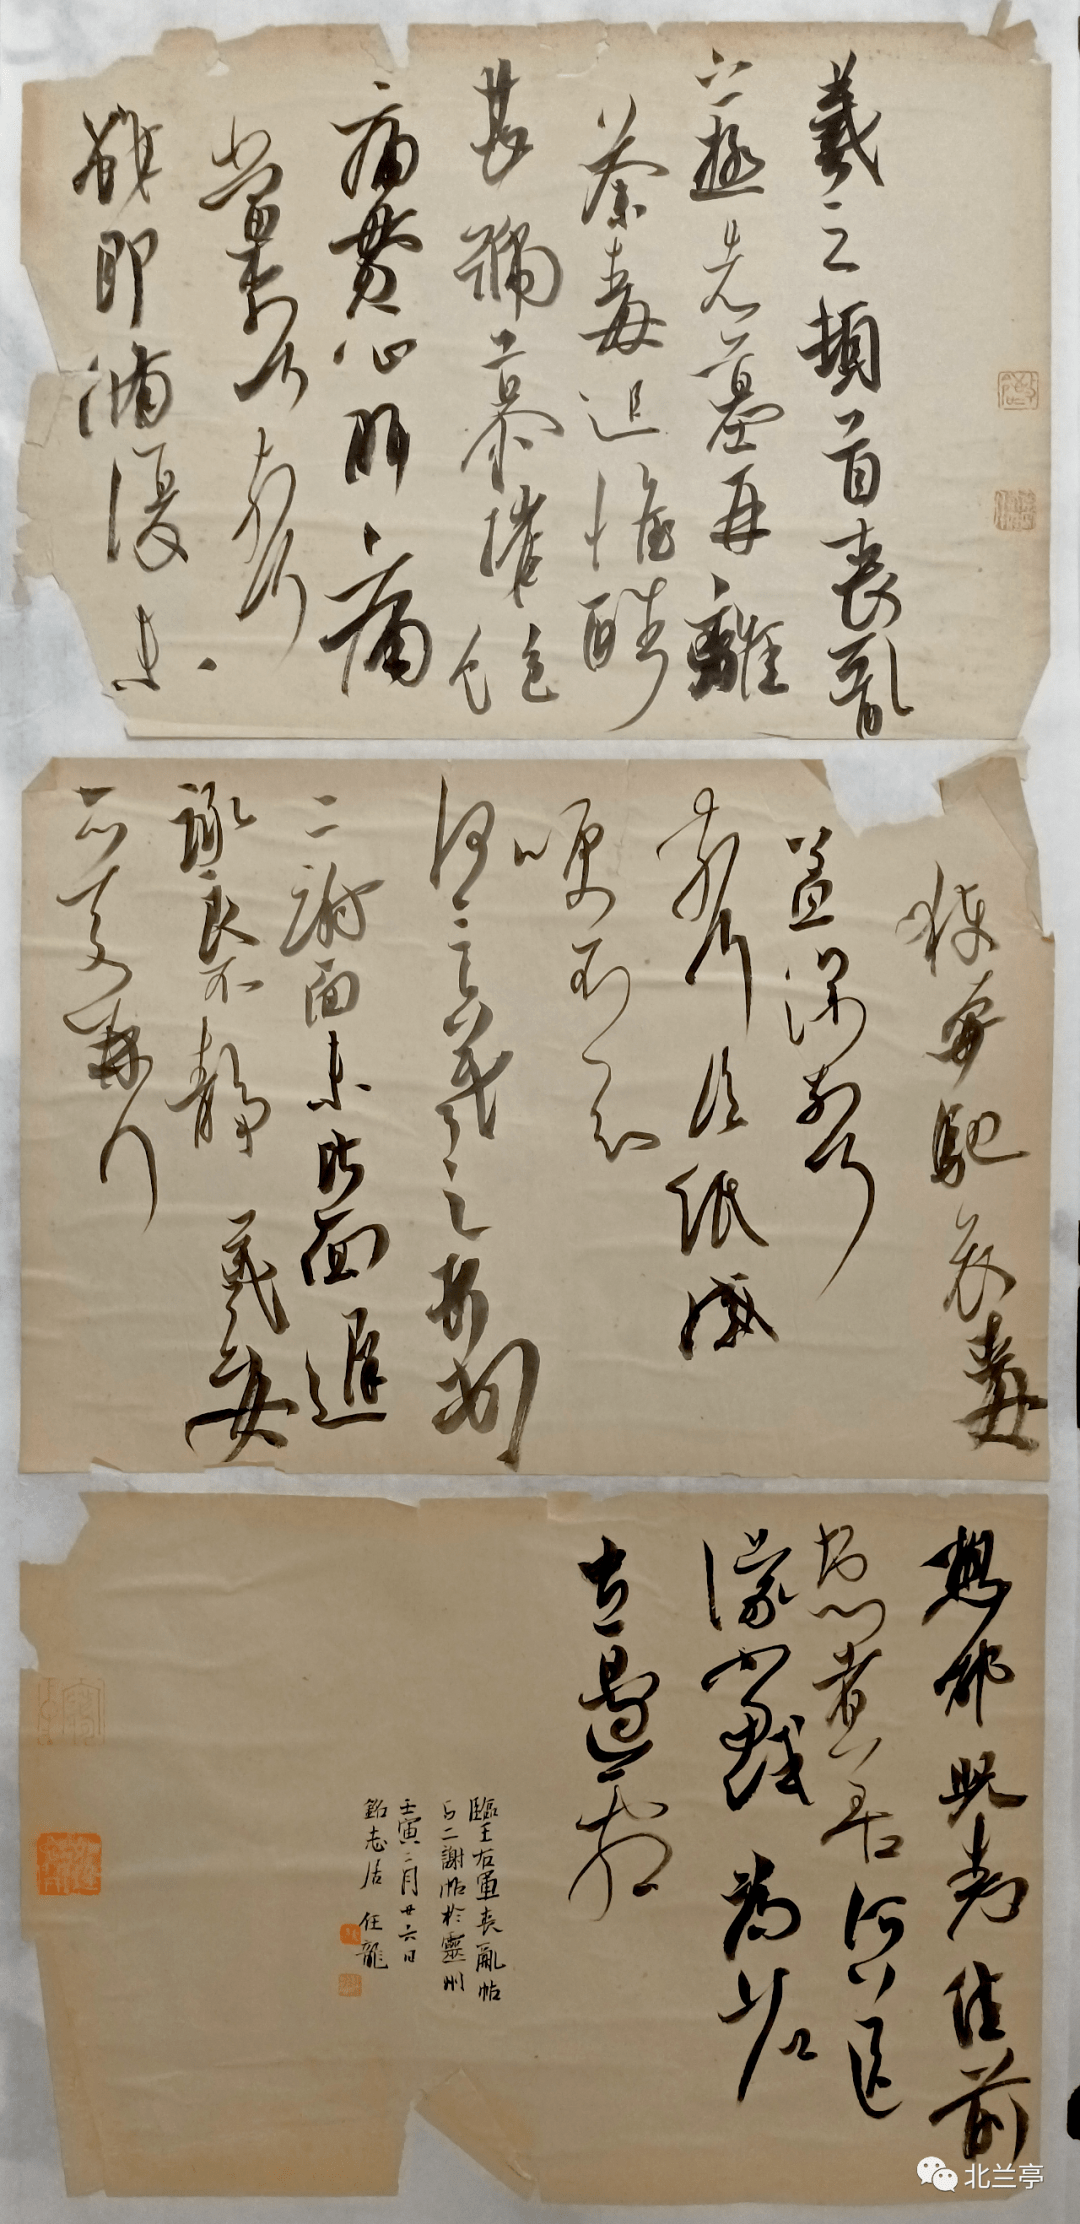 羲之頓首喪亂
之極先墓再離
荼毒追惟酷
甚號慕摧絶
痛貫心肝痛
當柰何柰何
雖即脩復未
獲奔馳哀毒
益深柰何
柰何臨紙感
哽不知
何言羲之頓首頓首
二謝面未比面遲
詠良不靜 羲之女
愛再拜
想邵兒悉佳前
患者善 所送
議當試 尋省
左邊劇
臨王右軍喪亂帖
与二謝帖於靈州
壬寅二月廿六日
銘志居 任龍
北兰亭